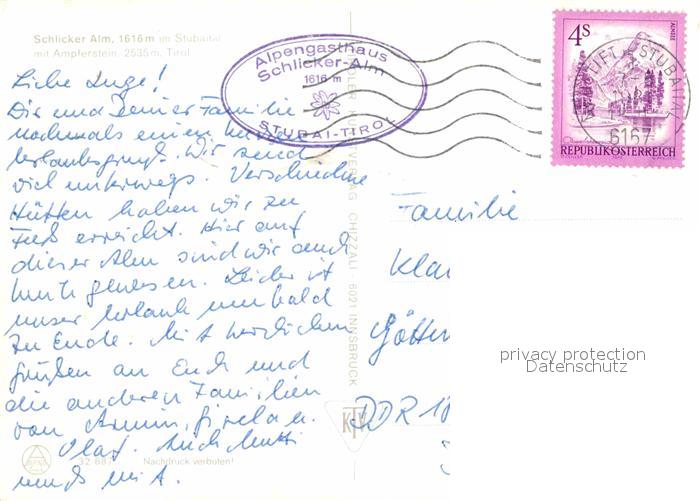 Schlicker Alm, 1616 m im Stubaital
mit Ampferstein, 2535 m, Tirol
Alpengasthaus
Schlicker-Alm
1616 m
STUBAI-TIROL
4S
ALMSEE
STUBAITAL
6167
REPUBLIK ÖSTERREICH
Liebe Inge!
Dir und Deiner Familie
nochmals einen
Urlaubsgruß. Wir sind
viel unterwegs. Verschiedene
Hütten haben wir zu
Fuß erreicht. Hier auf
dieser Alm sind wir auch
heute gewesen. Leider ist
unser Urlaub nun bald
zu Ende. Mit herzlichen
Grüßen an Euch und
die anderen Familien
von Armin, Gisela u.
Olaf. Auch Mutti
Familie
DDR
VERLAG CHIZZALI · 6021 INNSBRUCK
KTV
Nachdruck verboten!
privacy protection
Datenschutz